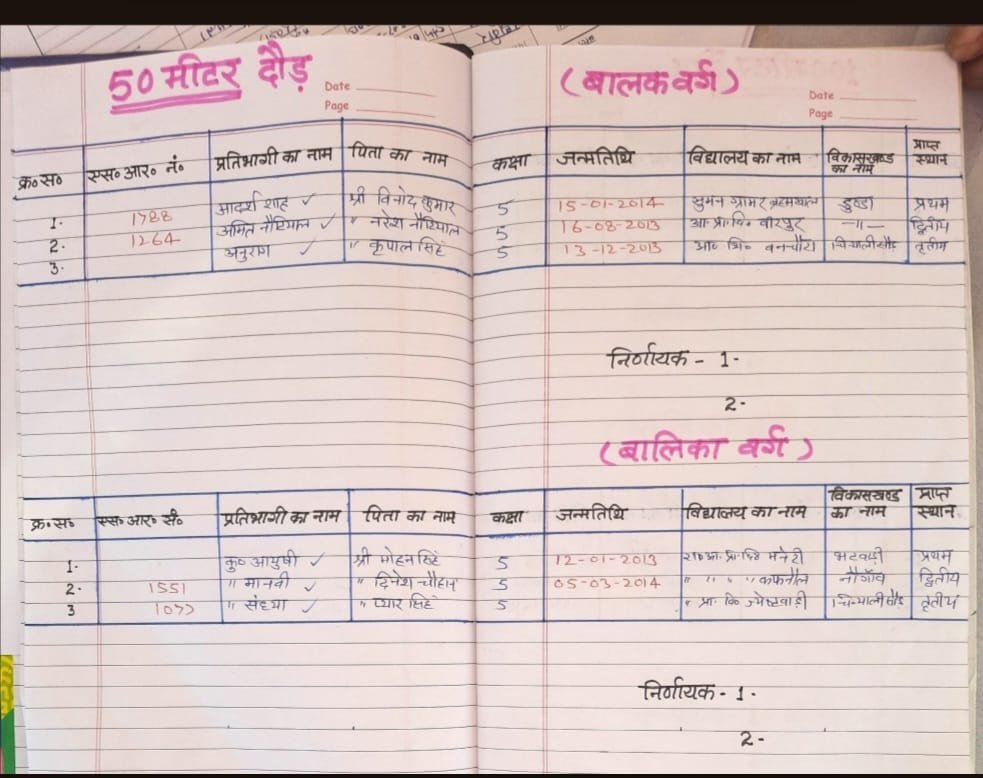 50 मीटर दौड़ (बालक वर्ग)
Date Page Date Page
क्र०स० एस०आर० नं० प्रतिभागी का नाम पिता का नाम कक्षा जन्मतिथि विद्यालय का नाम विकासखण्ड का नाम प्राप्त स्थान
1. 1788 आदर्श शाह ✓ श्री विनोद कुमार 5 15-01-2014 सुमन ग्रामर ब्रह्मखाल डुण्डा प्रथम
2. 1264 अमित नौटियाल ✓ " नरेश नौटियाल 5 16-08-2013 आ.प्रा.वि. वीरपुर -〃- द्वितीय
3. अनुराग ✓ " कृपाल सिंह 5 13-12-2013 आ० वि० बनचौरा चिन्यालीसौड़ तृतीय
निर्णायक - 1.
2.
(बालिका वर्ग)
क्र०स० एस०आर० सं० प्रतिभागी का नाम पिता का नाम कक्षा जन्मतिथि विद्यालय का नाम विकासखण्ड का नाम प्राप्त स्थान
1. कु० आयुषी ✓ श्री मोहन सिंह 5 12-01-2013 रा०आ.प्रा.वि मनेरी भटवाड़ी प्रथम
2. 1551 " मानवी ✓ " दिनेश चौहान 5 05-03-2014 " " " " कफनौल नौगाँव द्वितीय
3 1077 " संध्या ✓ " प्यार सिंह 5 " प्रा. वि० ज्येष्टवाड़ी चिन्यालीसौड़ तृतीय
निर्णायक - 1.
2-